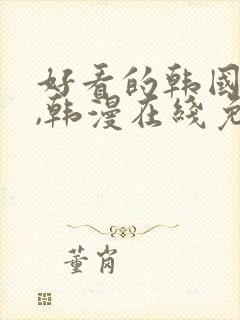 好看的韩国
,韩漫在线免
董肖